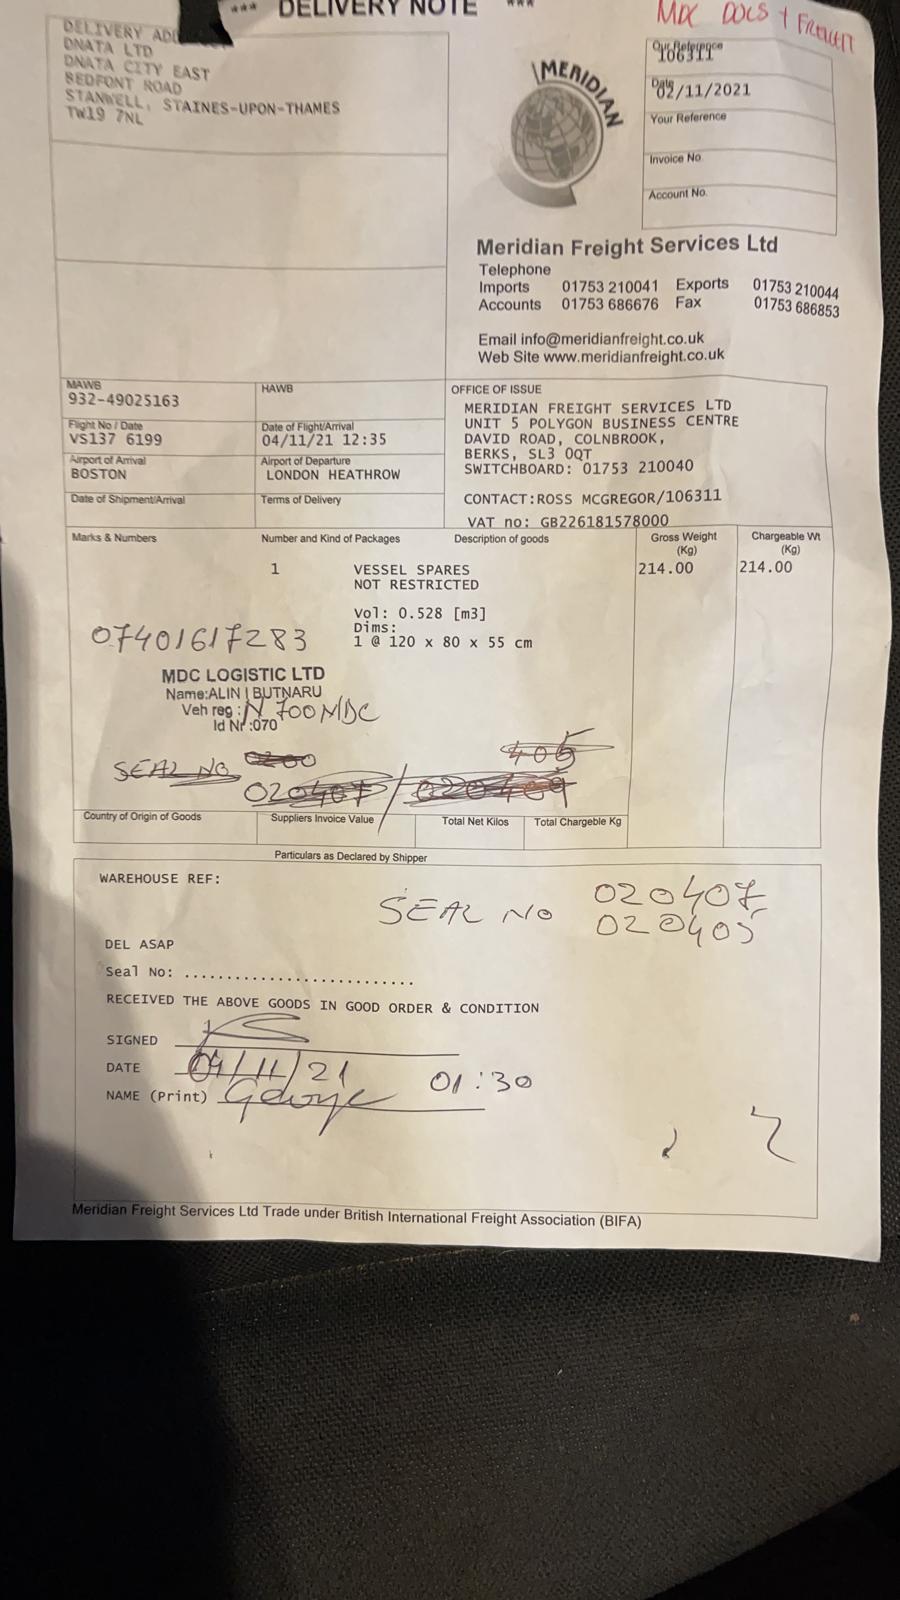 *** DELIVERY NOTE ***
MDC DOCS + FREIGHT
DELIVERY
DNATA LTD
DNATA CITY EAST
BEDFONT ROAD
STANWELL, STAINES-UPON-THAMES
TW19 7NL
MERIDIAN
Our Reference
106311
Date
02/11/2021
Your Reference
Invoice No.
Account No.
Meridian Freight Services Ltd
Telephone
Imports 01753 210041 Exports 01753 210044
Accounts 01753 686676 Fax 01753 686853
Email info@meridianfreight.co.uk
Web Site www.meridianfreight.co.uk
MAWB
932-49025163
HAWB
Flight No / Date
VS137 6199
Date of Flight/Arrival
04/11/21 12:35
Airport of Arrival
BOSTON
Airport of Departure
LONDON HEATHROW
Date of Shipment/Arrival
Terms of Delivery
OFFICE OF ISSUE
MERIDIAN FREIGHT SERVICES LTD
UNIT 5 POLYGON BUSINESS CENTRE
DAVID ROAD, COLNBROOK,
BERKS, SL3 0QT
SWITCHBOARD: 01753 210040
CONTACT:ROSS MCGREGOR/106311
VAT no: GB226181578000
Marks & Numbers
Number and Kind of Packages
Description of goods
Gross Weight
(Kg)
Chargeable Wt
(Kg)
1 VESSEL SPARES 214.00 214.00
NOT RESTRICTED
Vol: 0.528 [m3]
Dims:
1 @ 120 x 80 x 55 cm
07401617283
MDC LOGISTIC LTD
Name:ALIN I BUTNARU
Veh reg : N 700MDC
Id Nr :070
405
SEAL NO
020407 /
Country of Origin of Goods
Suppliers Invoice Value
Total Net Kilos
Total Chargeable Kg
Particulars as Declared by Shipper
WAREHOUSE REF:
SEAL NO 020407
020405
DEL ASAP
Seal No: ...........................
RECEIVED THE ABOVE GOODS IN GOOD ORDER & CONDITION
SIGNED
DATE 04/11/21 01:30
NAME (Print) George
Meridian Freight Services Ltd Trade under British International Freight Association (BIFA)